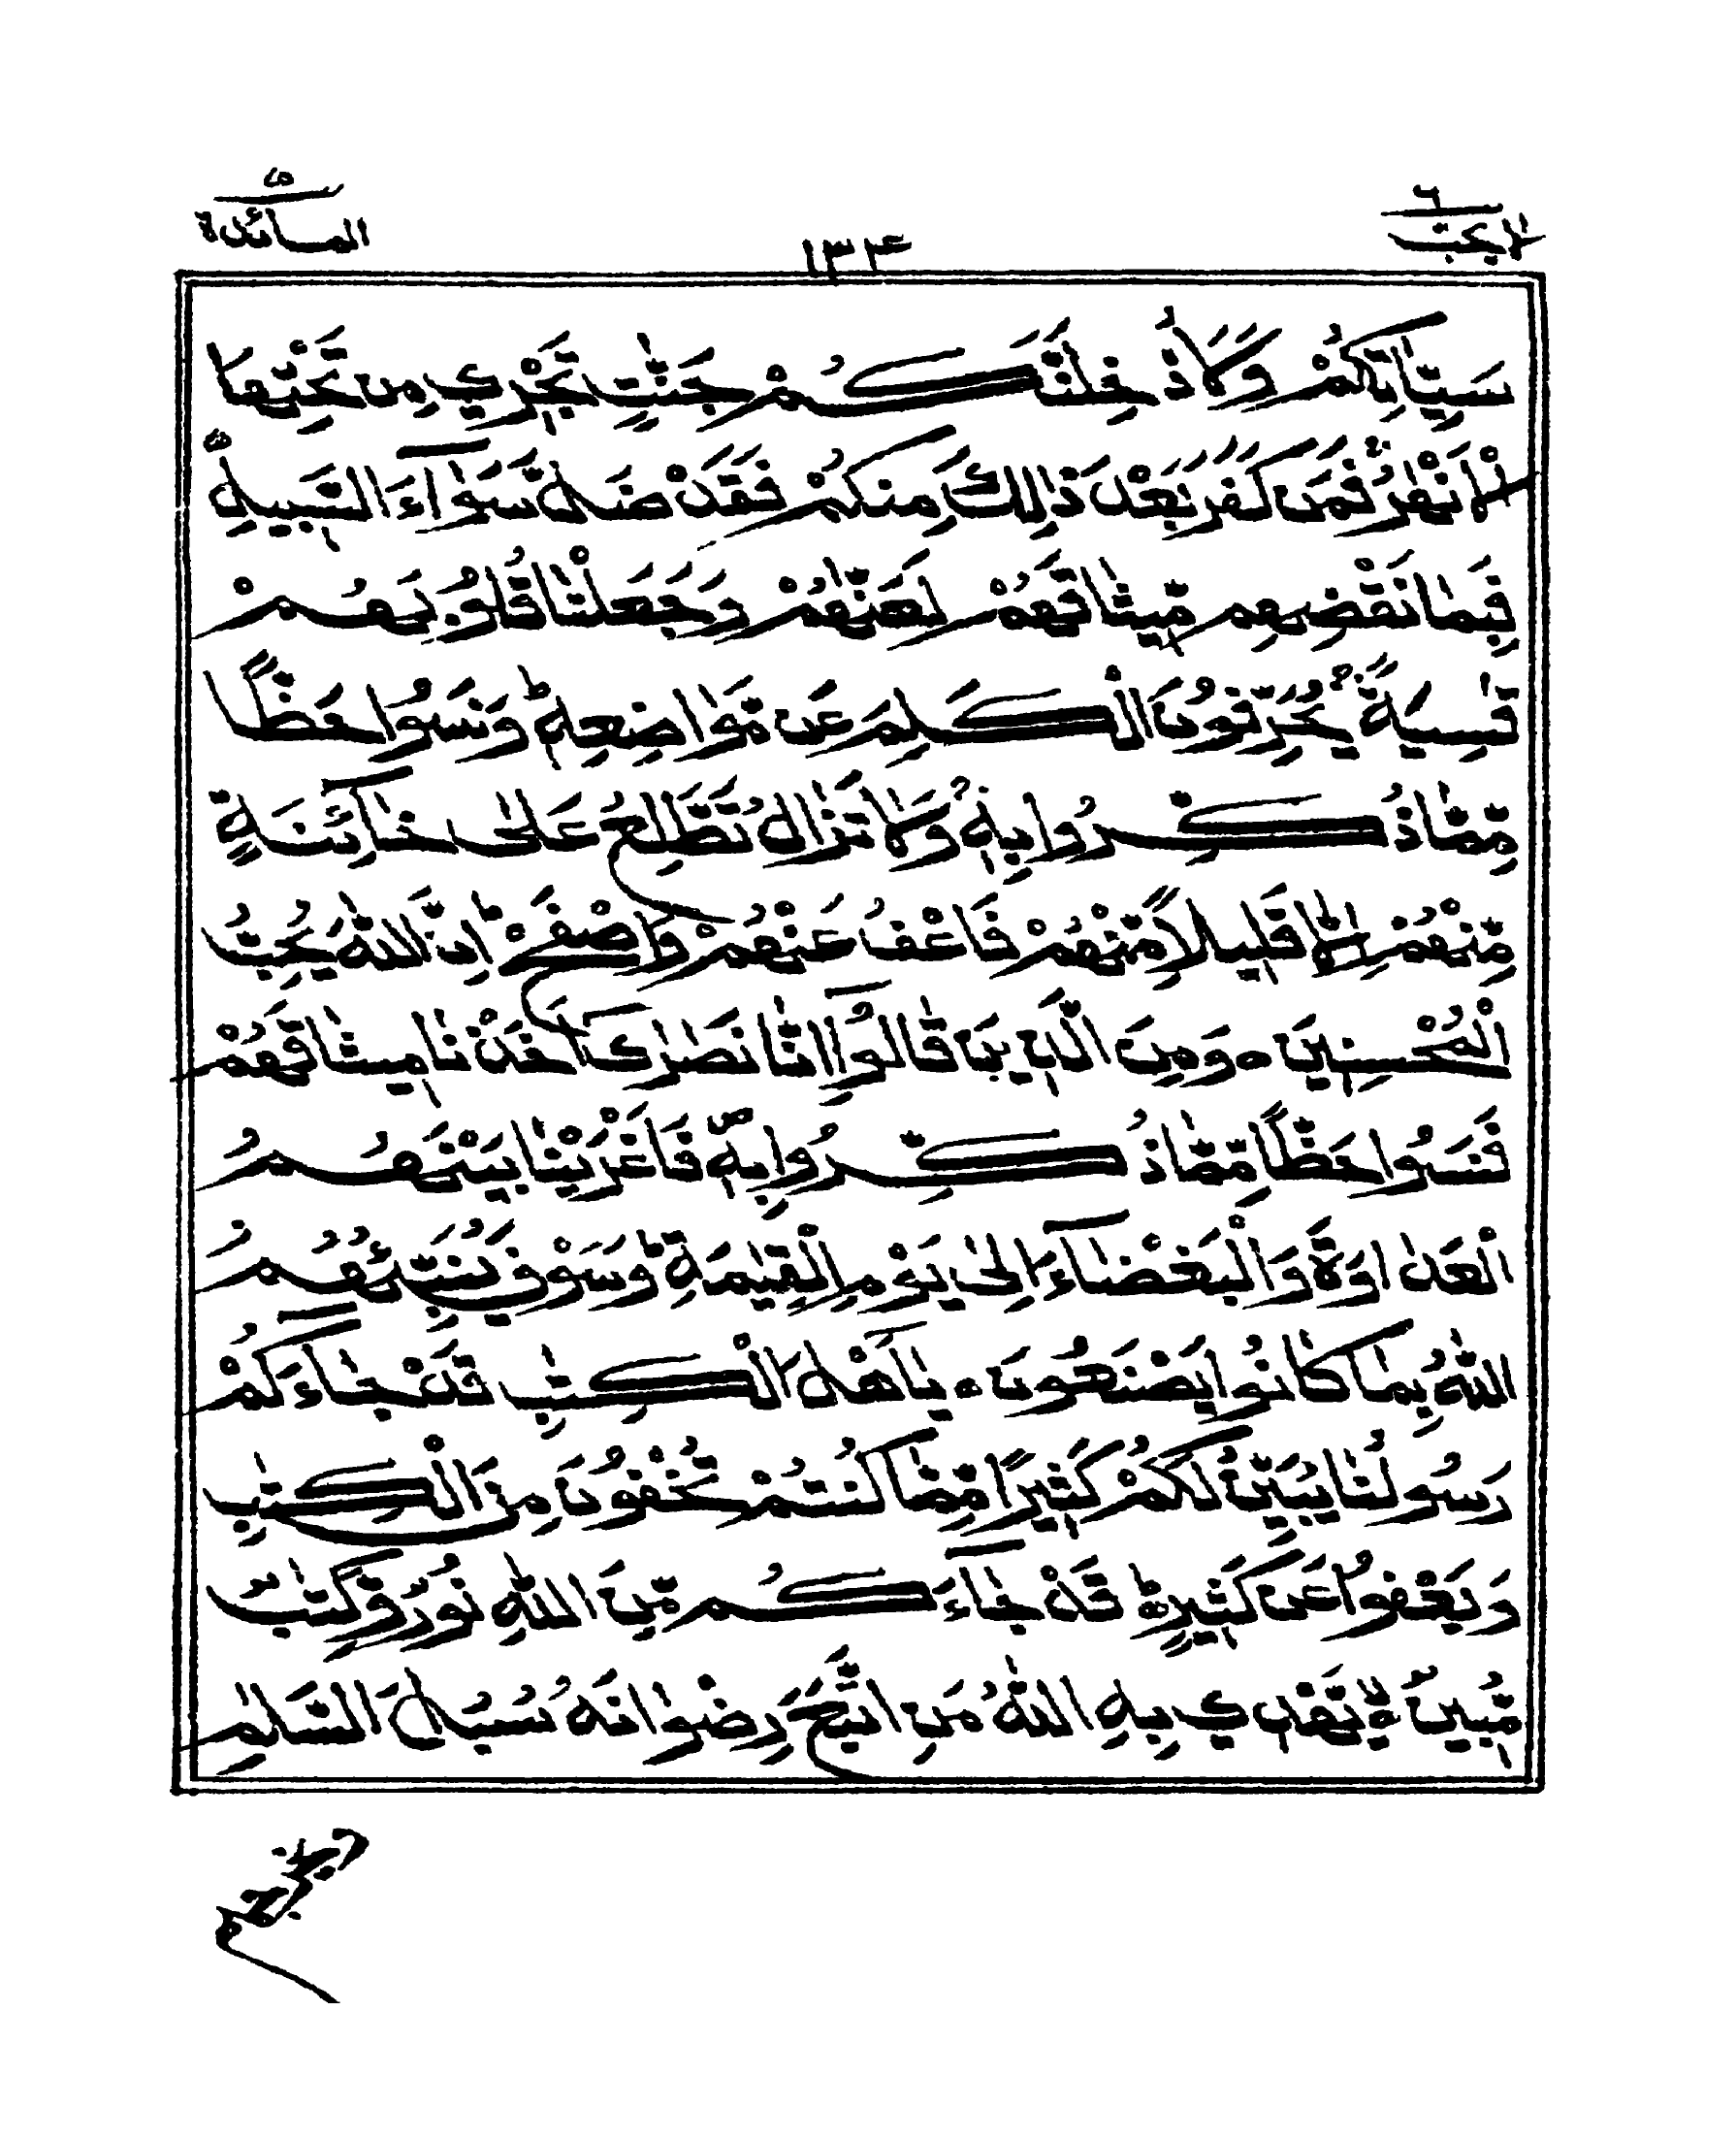 لا يحب ٦
١٣٤
المائدة ٥
سَيِّاٰتِكُمْ وَلَاُدْخِلَنَّكُمْ جَنّٰتٍ تَجْرِي مِن تَحْتِهَا
الْاَنْهٰرُ فَمَن كَفَرَ بَعْدَ ذٰلِكَ مِنكُمْ فَقَدْ ضَلَّ سَوَآءَ السَّبِيلِ
فَبِمَا نَقْضِهِم مِّيثَاقَهُمْ لَعَنّٰهُمْ وَجَعَلْنَا قُلُوبَهُمْ
قٰسِيَةً يُحَرِّفُونَ الْكَلِمَ عَن مَّوَاضِعِهِ وَنَسُوا حَظًّا
مِّمَّا ذُكِّرُوا بِهِ وَلَا تَزَالُ تَطَّلِعُ عَلٰى خَآئِنَةٍ
مِّنْهُمْ اِلَّا قَلِيلًا مِّنْهُمْ فَاعْفُ عَنْهُمْ وَاصْفَحْ اِنَّ اللّٰهَ يُحِبُّ
الْمُحْسِنِينَ ٥ وَمِنَ الَّذِينَ قَالُوٓا اِنَّا نَصٰرٰىٓ اَخَذْنَا مِيثَاقَهُمْ
فَنَسُوا حَظًّا مِّمَّا ذُكِّرُوا بِهِ فَاَغْرَيْنَا بَيْنَهُمُ
الْعَدَاوَةَ وَالْبَغْضَآءَ اِلٰى يَوْمِ الْقِيٰمَةِ وَسَوْفَ يُنَبِّئُهُمُ
اللّٰهُ بِمَا كَانُوا يَصْنَعُونَ ٥ يٰٓاَهْلَ الْكِتٰبِ قَدْ جَآءَكُمْ
رَسُولُنَا يُبَيِّنُ لَكُمْ كَثِيرًا مِّمَّا كُنتُمْ تُخْفُونَ مِنَ الْكِتٰبِ
وَيَعْفُوا عَن كَثِيرٍ قَدْ جَآءَكُم مِّنَ اللّٰهِ نُورٌ وَّكِتٰبٌ
مُّبِينٌ ٥ يَهْدِي بِهِ اللّٰهُ مَنِ اتَّبَعَ رِضْوَانَهُ سُبُلَ السَّلٰمِ